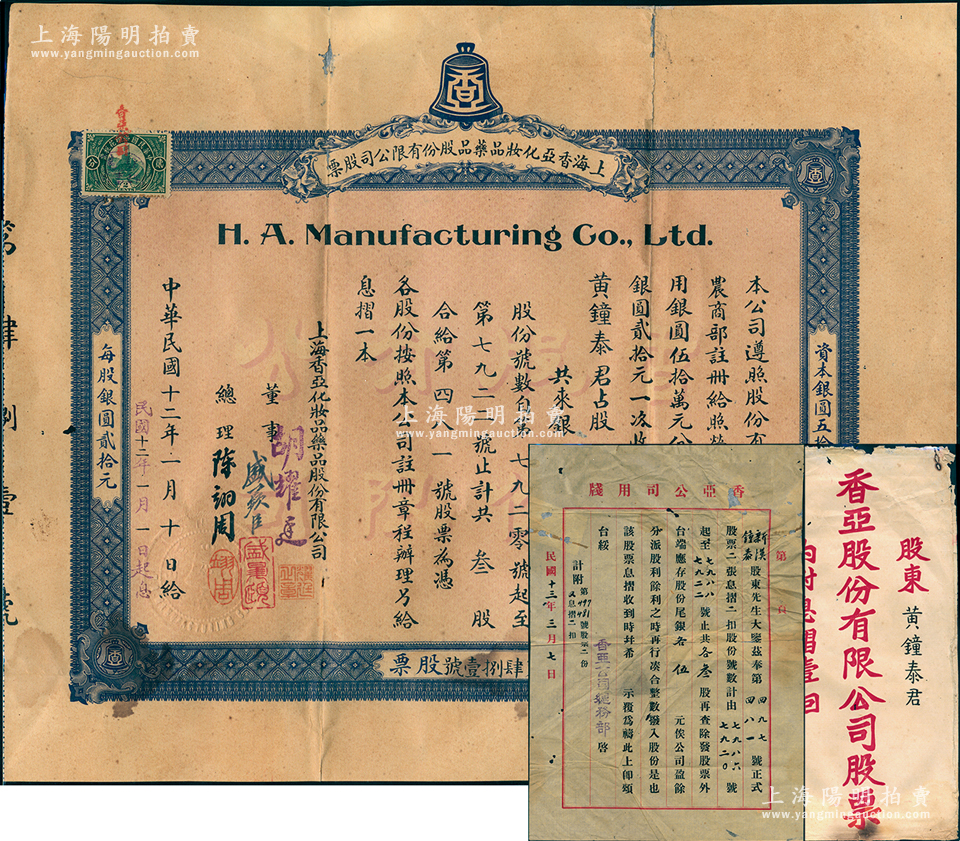 上海陽明拍賣
www.yangmingauction.com
香
上海香亞化妝品藥品股份有限公司股票
H. A. Manufacturing Co., Ltd.
本公司遵照股份有
農商部註冊給照
用銀圓伍拾萬元分
銀圓貳拾元一次收
黃鐘泰君占股
共來銀
股份號數自第七九二零號起至
第七九二二號止計共叁股
合給第四八一號股票為憑
各股份按照本公司註冊章程辦理另給
息摺一本
上海香亞化妝品藥品股份有限公司
董事 胡耀廷
總理 陳翊周
中華民國十二年一月十日給
民國十二年一月一日起息
資本銀圓五拾
每股銀圓貳拾元
第肆捌壹號
肆捌壹號股票
香亞公司用牋
第 頁
新漢
鐘泰
股東先生大鑒茲奉第
四九七
四八一
號正式
股票二張息摺二扣股份號數計由
七九八六
七九二〇
號
起至
七九八八
七九二二
號止共各叁股再查除發股票外
台端應存股份尾銀各伍元俟公司盈餘
分派股利餘利之時再行湊合整數撥入股份是也
該股票息摺收到時玨希示覆為禱此上即頌
台綏
香亞公司總務部啓
計附第
497
481
號股票二份
又息摺二扣
民國十三年三月七日
股東 黃鐘泰君
香亞股份有限公司股票
內附息摺壹扣
上海陽明拍賣
www.yangmingauction.com